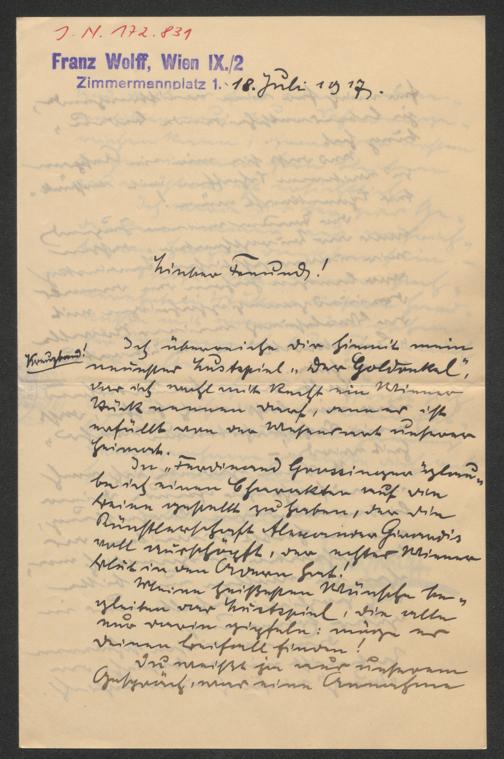 J. N. 172.831
Franz Wolff, Wien IX./2
Zimmermannplatz 1.
18. Juli 1917.
Lieber Freund!
Kreuzband!
Ich überreiche Dir hiemit mein
neuestes Lustspiel „Der Goldonkel“,
das ich wohl mit Recht ein Wiener
Stück nennen darf, denn es ist
erfüllt von der Wesensart unserer
Heimat.
In „Ferdinand Grossinger“ glau-
be ich einen Charakter auf die
Beine gestellt zu haben, der die
Künstlerschaft Alexander Girardis
voll ausschöpft, der echtes Wiener
Blut in den Adern hat!
Meine heißesten Wünsche be-
gleiten das Lustspiel, die alle
nur darin gipfeln: möge es
Deinen Beifall finden!
Du weißt ja aus unserem
Gespräch, was eine Annahme